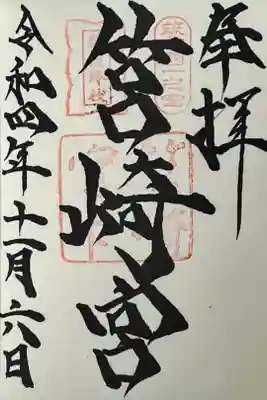 奉拝
筥崎宮
令和四年十一月六日